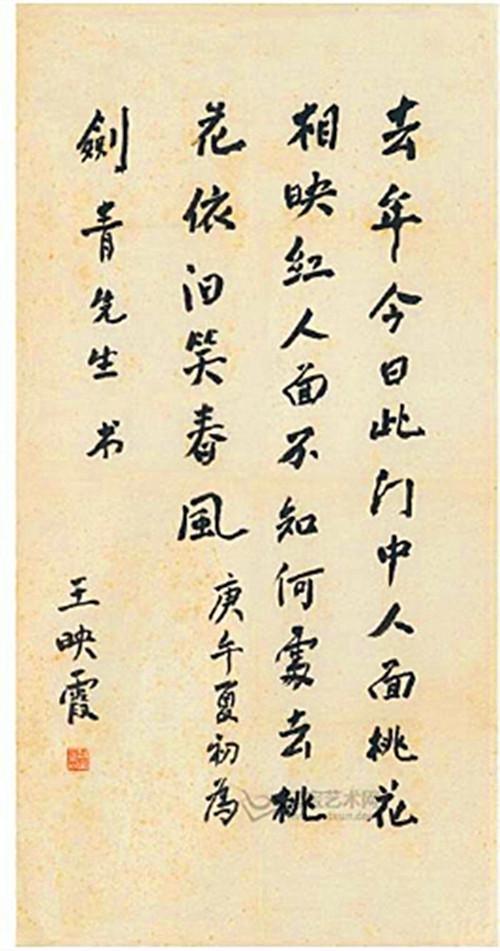 去年今日此门中人面桃花
相映红人面不知何處去桃
花依旧笑春風
庚午夏初為
劍青先生书
王映霞
艺术网